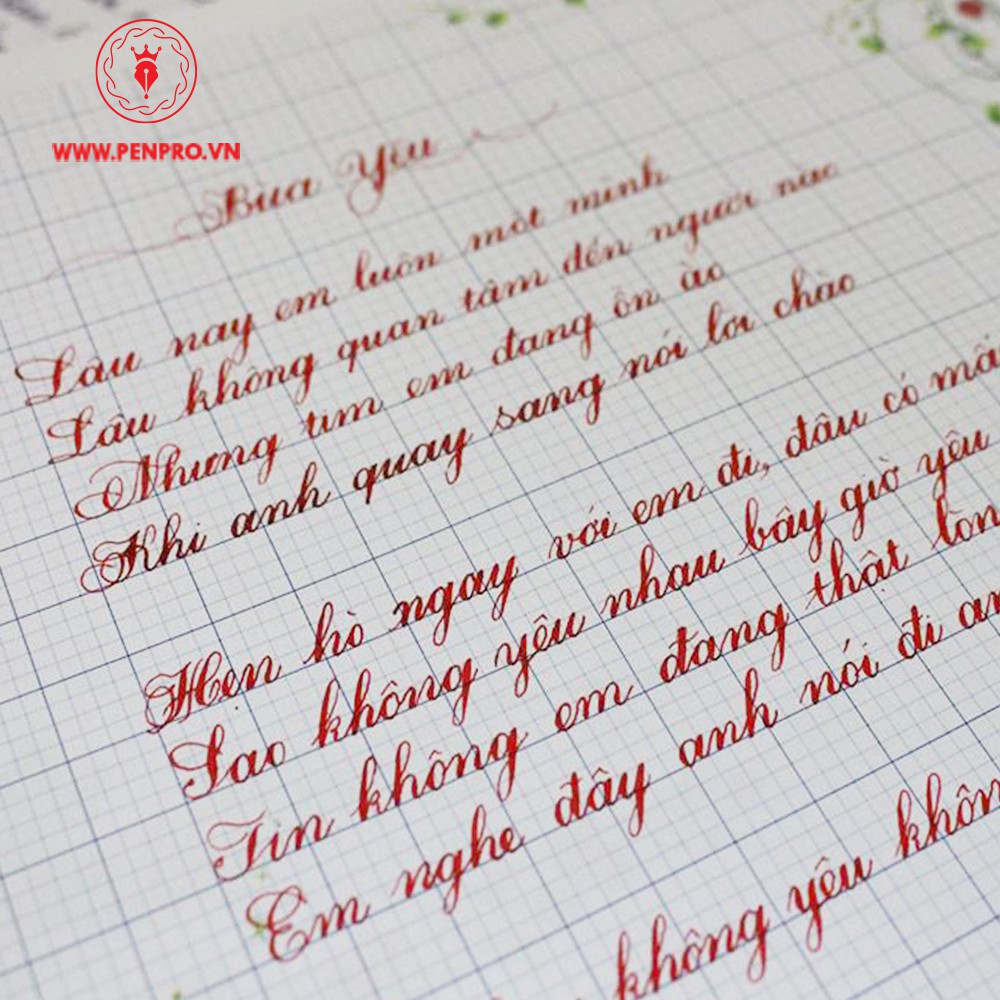 WWW.PENPRO.VN
Bùa Yêu
Lâu nay em luôn một mình
Lâu không quan tâm đến người nào
Nhưng tim em đang ồn ào
Khi anh quay sang nói lời chào
Hẹn hò ngay với em đi, đâu có mấy
Sao không yêu nhau bây giờ yêu
Tin không em đang thật lòng
Em nghe đây anh nói đi
không yêu không